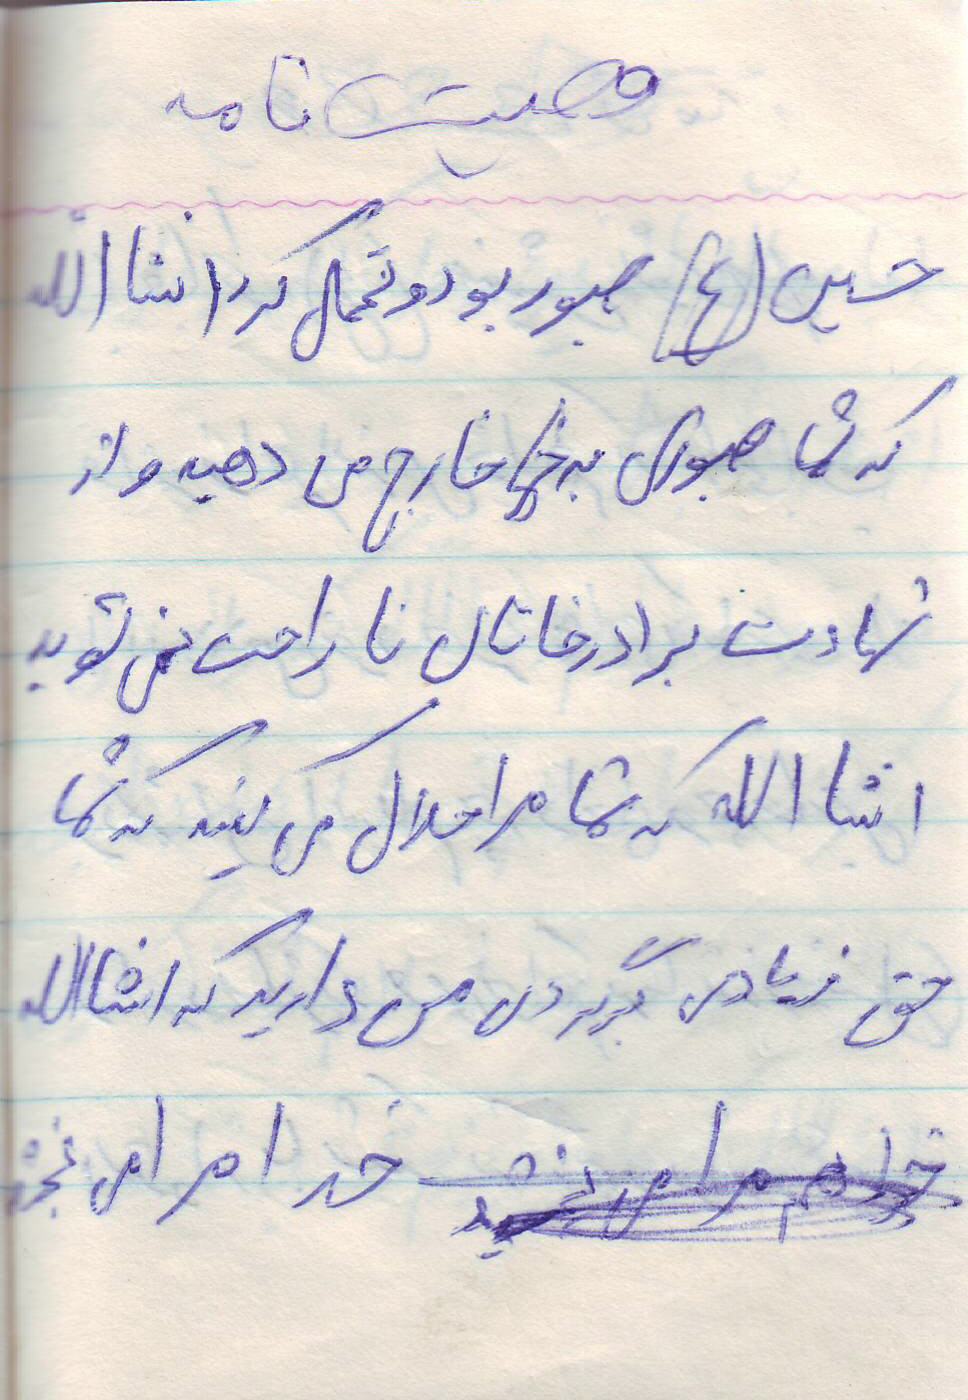 وصیت نامه
حسین (ع) صبور بود و تحمل کرد انشا الله
که شما صبوری به خارج می دهید و از
شهادت برادرخاتان ناراحت نمی شوید
انشا الله که شما مرا حلال می کنید که شما
حق زیادی گردن من دارید که انشاالله
خدا هم مرا می بخشید خدا مرا می بخشد